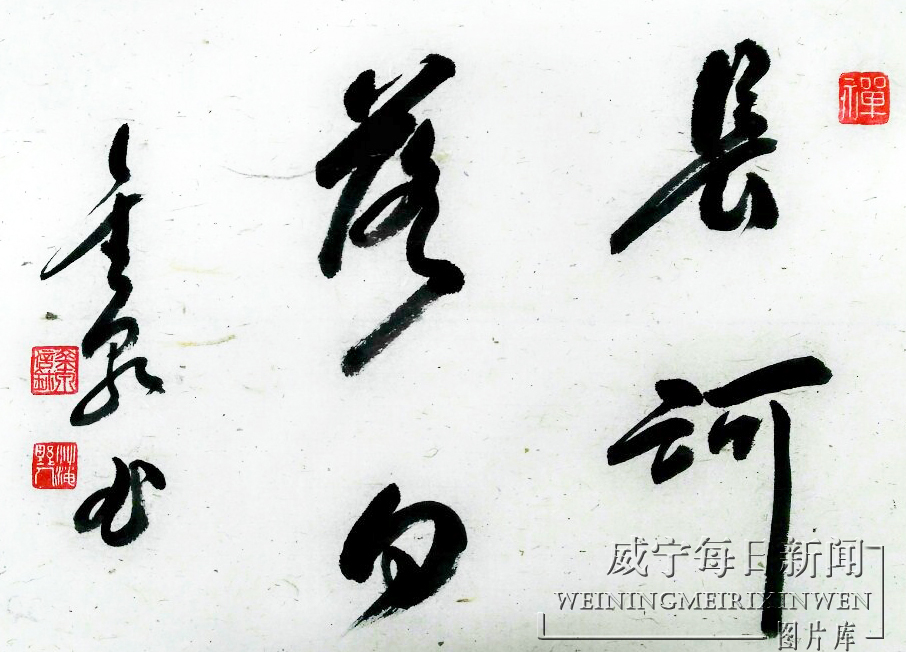 禪
長河
落日
金泉书
威宁每日新闻
WEININGMEIRIXINWEN
图片库